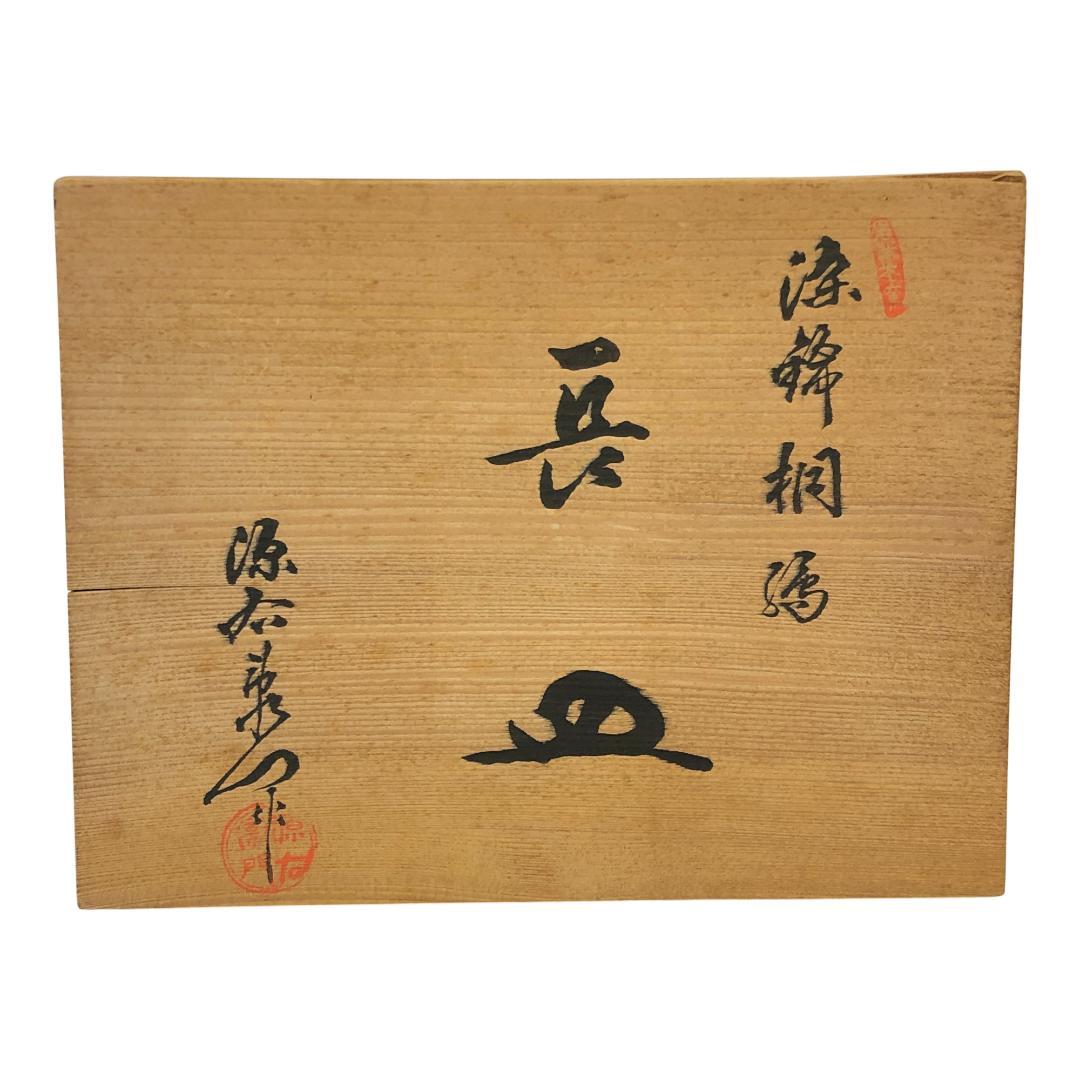 染錦桐鳳
長皿
源右衛門作
源右衛門